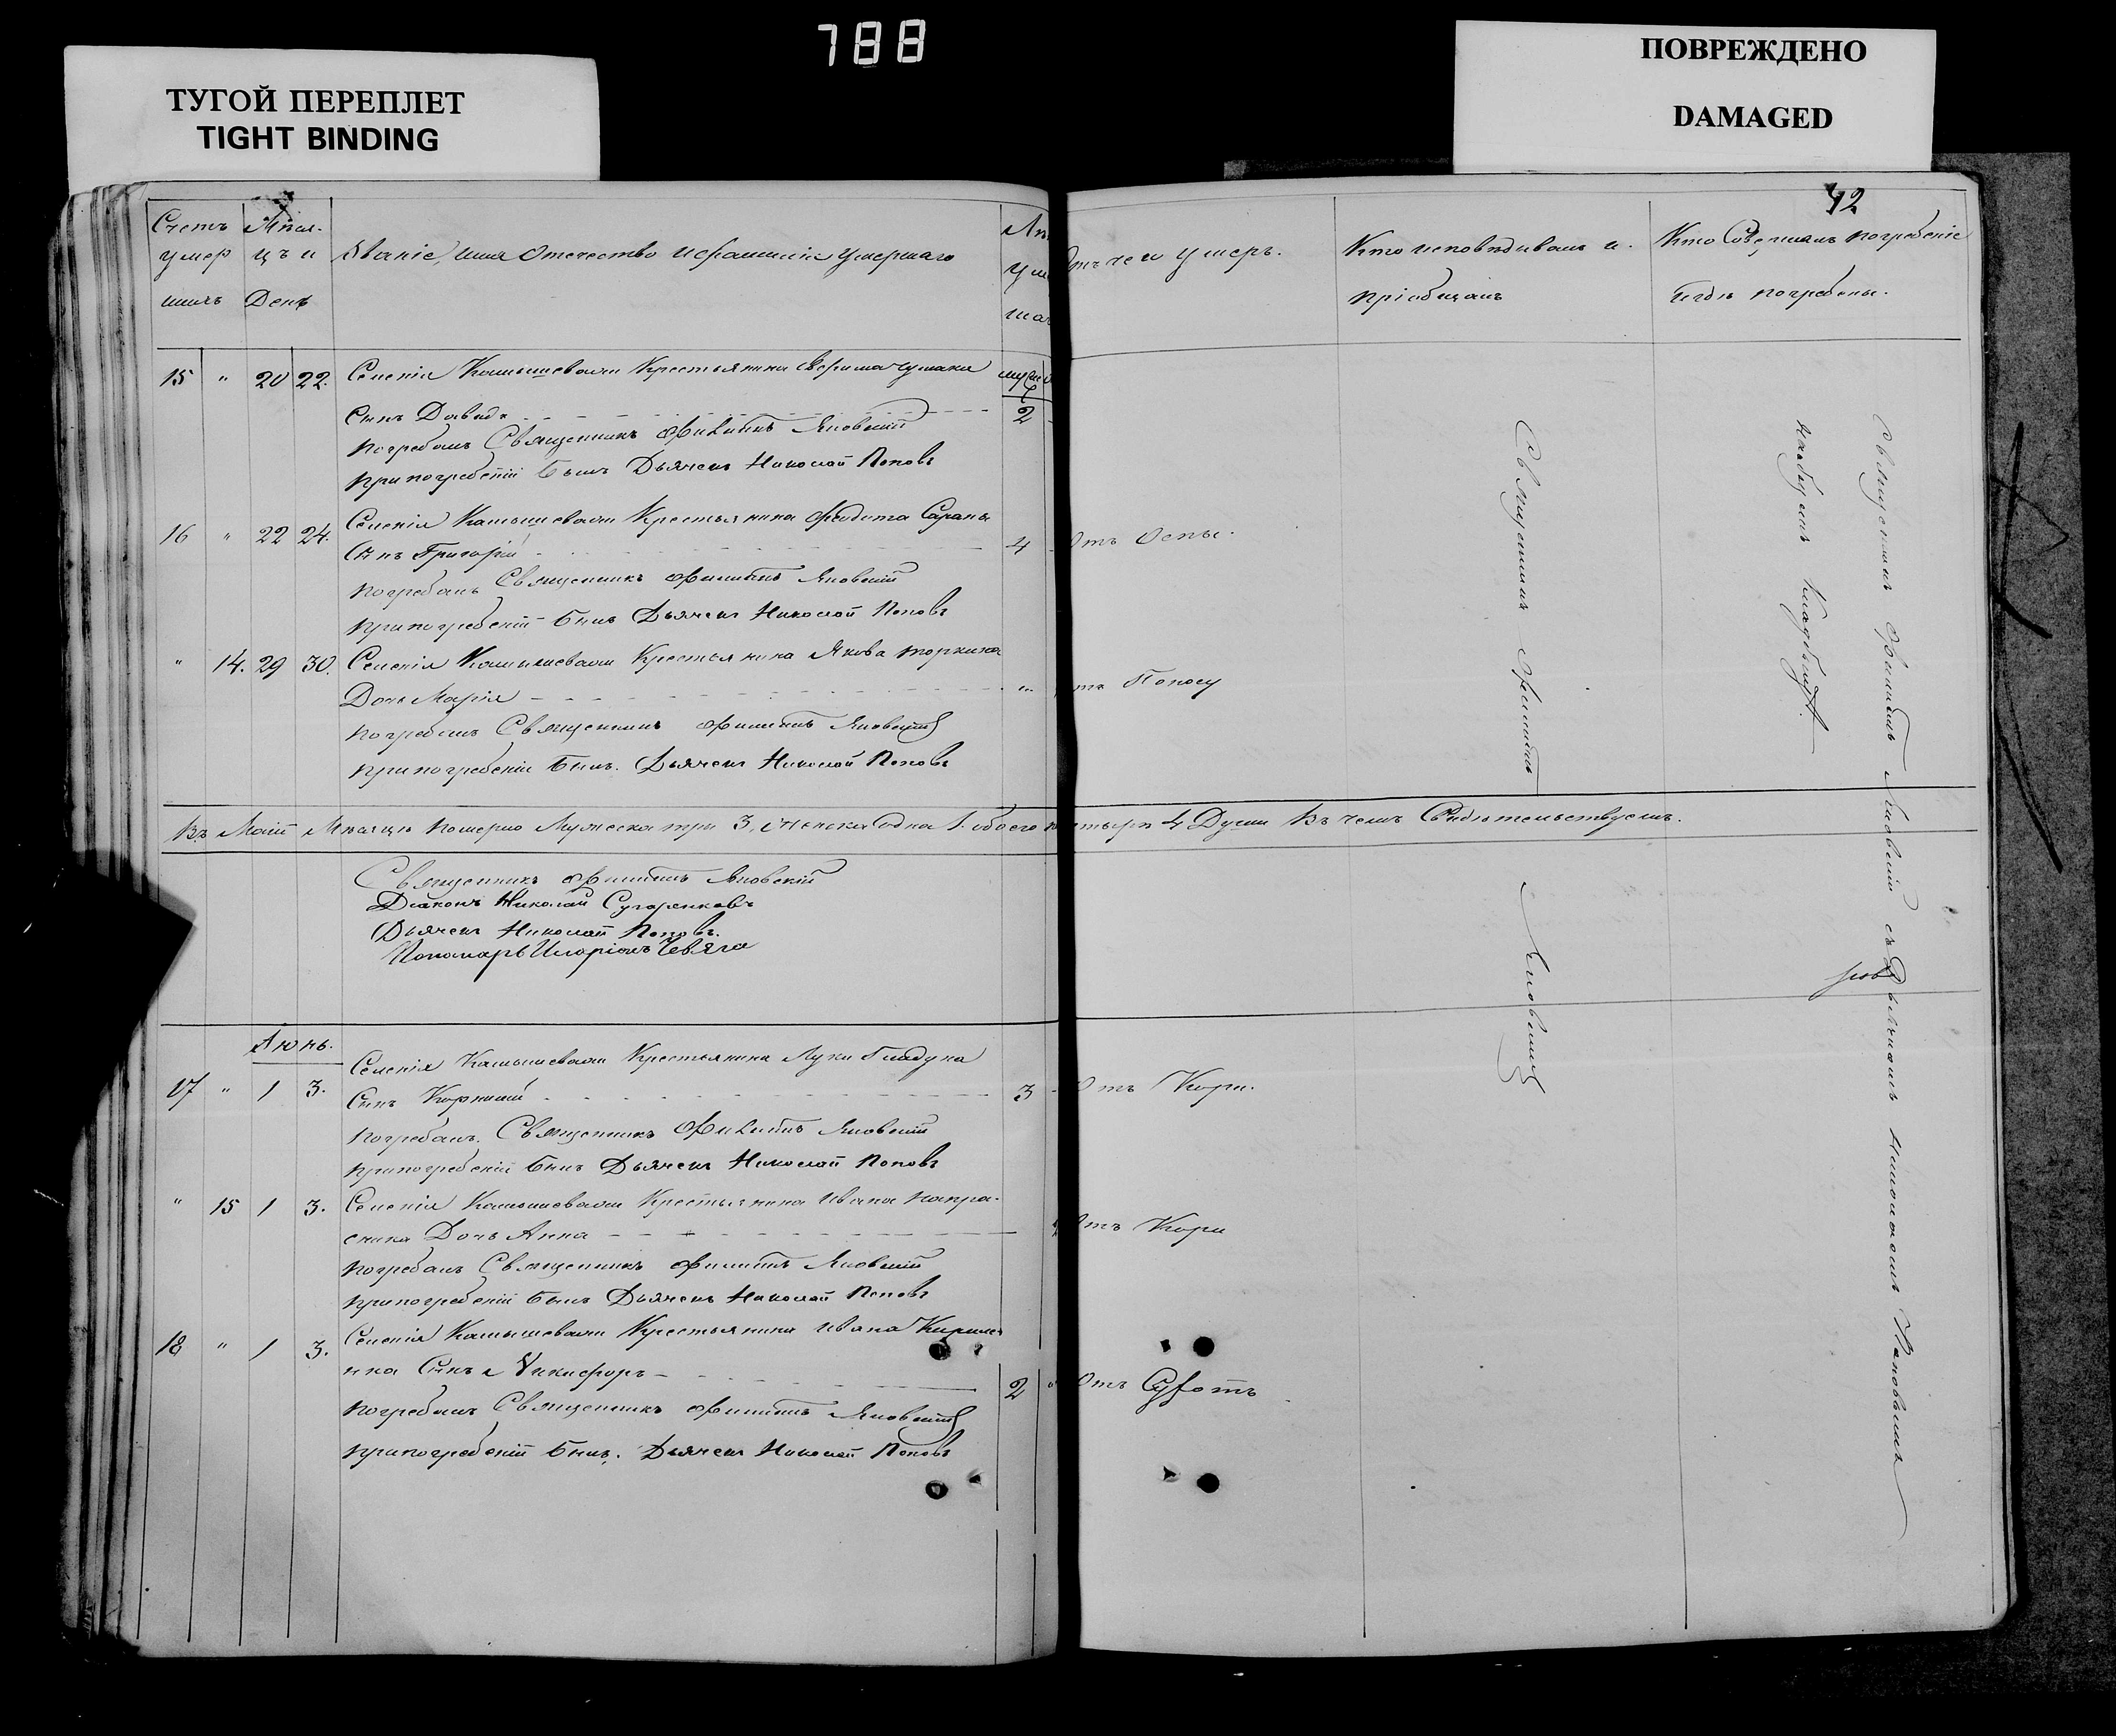 788
ТУГОЙ ПЕРЕПЛЕТ
TIGHT BINDING
ПОВРЕЖДЕНО
DAMAGED
42
Счетъ умер шихъ
Мѣся- цъ и День
Званіе, имя Отечество и фамилія умершаго
Отъ чего умеръ.
Кто исповѣдывалъ и пріобщалъ
Кто Совершалъ погребеніе и гдѣ погребены.
15 " 20 22. Селенія Камышевахи Крестьянина Чумака
Сынъ Давидъ 2
Погребалъ Священникъ Филиппъ Яновскій
При погребеніи былъ Дьячекъ Николай Поповъ
16 " 22 24. Селенія Камышевахи Крестьянина
Сынъ Григорій 4 Отъ Оспы.
Погребалъ Священникъ Филиппъ Яновскій
При погребеніи былъ Дьячекъ Николай Поповъ
" 14. 29 30. Селенія Камышевахи Крестьянина Якова
Дочь Марія Отъ Поносу
Погребалъ Священникъ Филиппъ Яновскій
При погребеніи былъ. Дьячекъ Николай Поповъ
Въ Маіи Мѣсяцѣ Померло Мужеска три 3, Женска одна 1. обоего 4 Души Въ чемъ Свидѣтельствуемъ.
Священникъ Филиппъ Яновскій
Діаконъ Николай
Дьячекъ Николай Поповъ.
Пономарь Иларіонъ
Іюнь.
17 " 1 3. Селенія Камышевахи Крестьянина Луки Гладуна
Сынъ Корнилій 3 Отъ Кори.
Погребалъ. Священникъ Филиппъ Яновскій
При погребеніи былъ Дьячекъ Николай Поповъ
" 15 1 3. Селенія Камышевахи Крестьянина Ивана
Дочь Анна Отъ Кори
Погребалъ Священникъ Филиппъ Яновскій
При погребеніи былъ Дьячекъ Николай Поповъ
18 " 1 3. Селенія Камышевахи Крестьянина Ивана Кирилен
нка Сынъ Никифоръ 2 Отъ
Погребалъ Священникъ Филиппъ Яновскій
При погребеніи былъ. Дьячекъ Николай Поповъ
Священникъ Филиппъ Яновскій
Священникъ Филиппъ Яновскій съ Дьячкомъ Николаемъ Поповымъ
кладбищѣ.